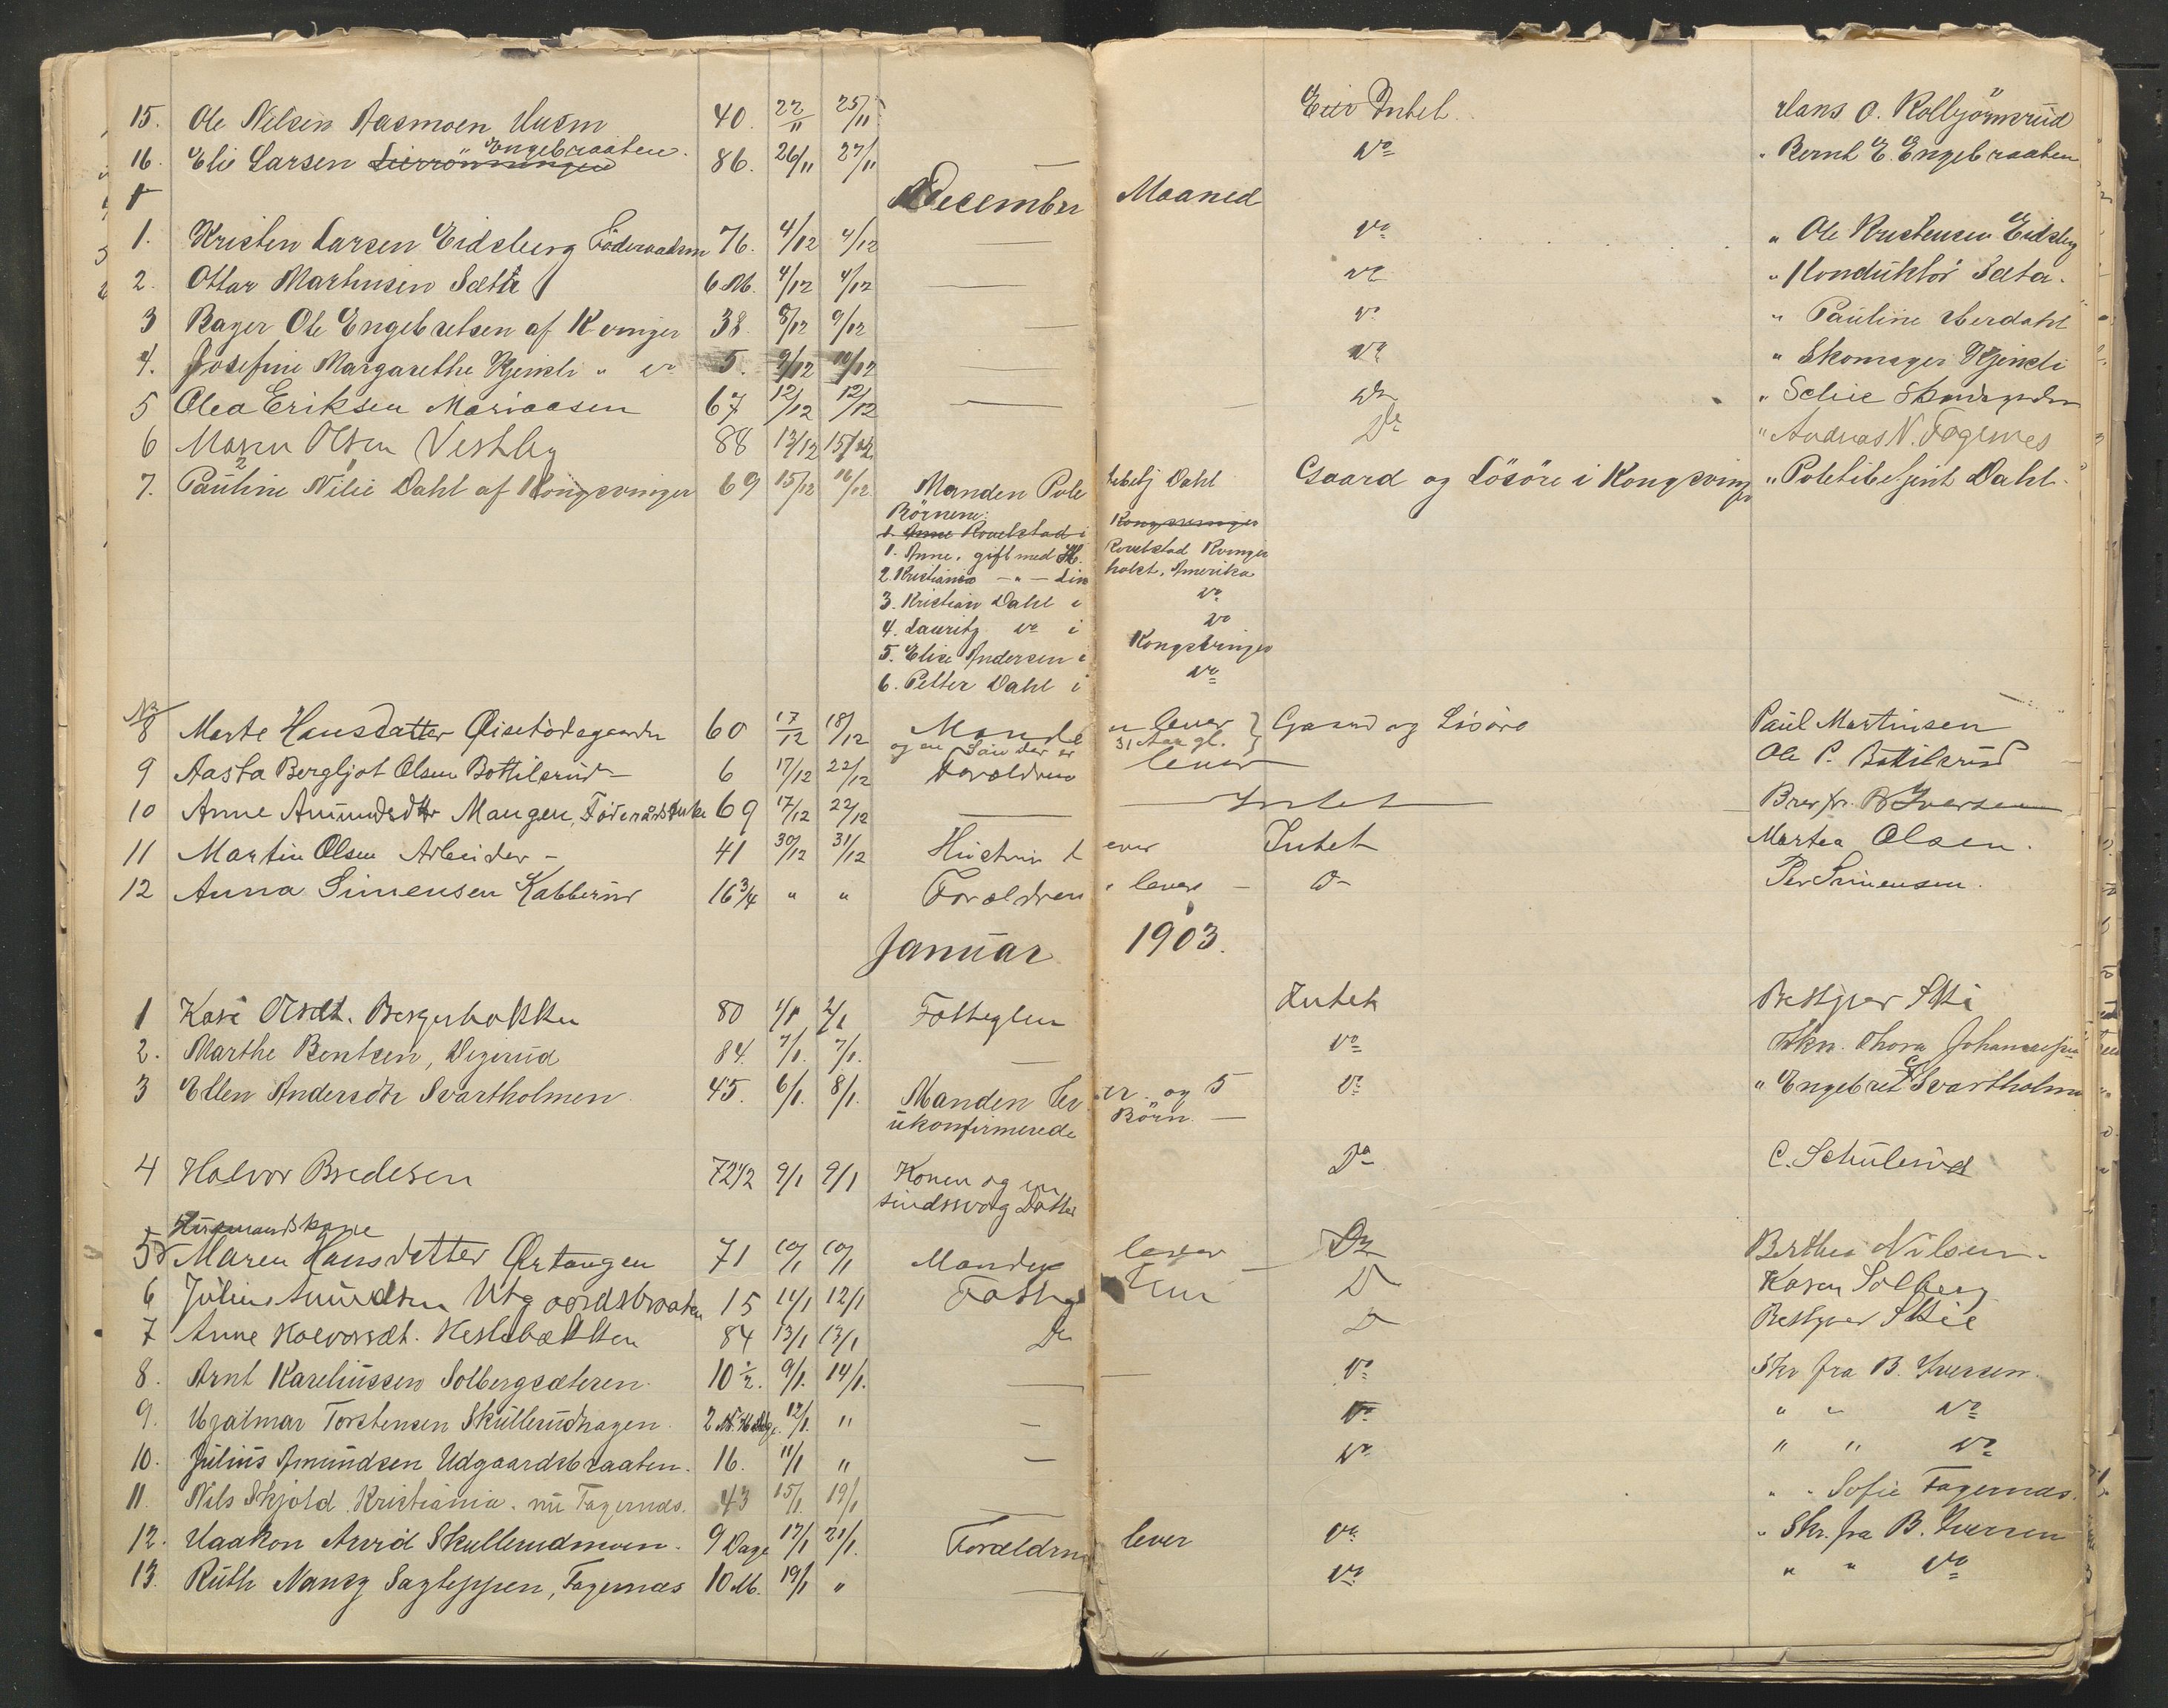 15. Ole Nilsen Aasmoen Husm 40. 22/11 25/11 Eier Intet. Hans O. Kolbjörnsrud
Engebraaten.
16. Eli Larsen 86. 26/11 27/11 — Do " Bernt E. Engebraaten
December Maaned
1. Kristen Larsen Eidsberg Föderaadsm 76. 4/12 4/12 — Do " Ole Kristensen Eidsberg
2. Ottar Martinsen Sæta 6 M. 4/12 4/12 — Do " Konduktör Sæta.
3 Bager Ole Engebretsen af Kvinger 38. 8/12 9/12 — Do " Pauline
4. Josefine Margarethe Kjensli " Do 5. 9/12 10/12 — Do " Skomager Kjensli
5 Olea Eriksen Mariaasen 67 12/12 12/12 — Do "
6 Maren Olsen Vestby 88 13/12 15/12 Do " Andreas N. Fagernes
7. Pauline Nilie Dahl af Kongsvinger 69 15/12 16/12. Manden Politibetj Dahl Gaard og Lösöre i Kongsvinger " Politibetjent Dahl.
Börnene: Kongsvinger
1. Anne Rovelstad i
1. Anne, gift med H. Rovelstad Kvinger
2. Kristiania — " — Lindholst, Amerika
3. Kristian Dahl i Do
4. Lauritz Do i Do
5. Elise Andersen i Kongsvinger
6. Petter Dahl i Do
No 8 Marte Hansdatter Öisetödegaarden 60 17/12 18/12 Manden lever Gaard og Lösöre Paul Martinsen
og en Sön der er 31 Aar gl.
9 Aasta Bergljot Olsen Bottilsrud 6 17/12 22/12 Forældrene lever Ole P. Bottilsrud
10 Anne Amundsdtr Mangen, Föderådsenke 69 17/12 22/12 — Intet — Brev fr. B Iversen
11 Martin Olsen Arbeider — 41 30/12 31/12 Hustruen lever Intet Martea Olsen.
12 Anna Simensen Kabberud 16 3/4 " " Forældrene lever — Do Per Simensen.
Januar 1903.
1 Kari Olsdt. Bergerbakken 80 1/1 2/1 Fattiglem Intet Bestyrer Skie
2. Marthe Bentsen, 84. 7/1. 7/1. — Do Thora
3 Ellen Andersdtr Svartholmen 45. 6/1. 8/1. Manden lever. og 5 Do " Engebret Svartholmen
ukonfirmerede Börn. —
4 Halvor Bredesen 72 1/2 9/1 9/1 Konen og en Do C. Schulerud
sindssvag Datter
Husmandskone
5 Maren Hansdatter Örtangen 71 10/1 10/1 Manden lever — Do Berthea Nilsen.
6 Julius Amundsen Utgaardsbraaten 15 11/1 12/1 Fattiglem Do Karen Solberg
7 Anne Halvorsdt. Heslebækken 84 13/1 13/1 Do Do Bestyrer Skie
8. Arnt Kareliussen Solbergsæteren. 10 1/2. 9/1. 14/1. — Do Skr fra B. Iversen.
9. Hjalmar Torstensen Skullerudhagen. 12/1. " — Do " " Do
10. Julius Amundsen Udgaardsbraaten. 16. 11/1 " — Do " " Do
11. Nils Skjold Kristiania. nu Fagernæs. 43 15/1. 19/1 " " Sofie Fagernæs.
12. Haakon Arvid Skullerudmoen. 9 Dage 17/1 21/1. Forældrene lever Do " Skr. fra B. Iversen
13. Ruth Nancy Sagteppen, Fagernæs 10 M. 19/1 " — Do " " Do